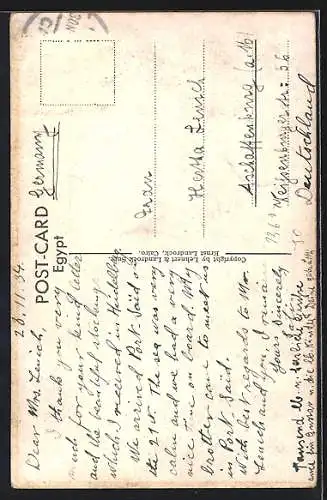 28.11.34.
Dear Mrs Lensch,
I thank you very
much for your kind letter
and the beautiful stocking
which I received in Heidelberg.
We arrived Port Said on
the 21st. The sea was very
calm and we had a very
nice time on board. My
brother came to meet us
in Port Said.
With best regards to Mr.
Lensch and you I remain
Yours sincerely
Tausend
POST-CARD
Egypt
Germany
Copyright by Lehnert & Landrock Succ.
Ernst Landrock, Cairo.
Frau
Hertha Lensch
Aschaffenburg (a/M)
Deutschland